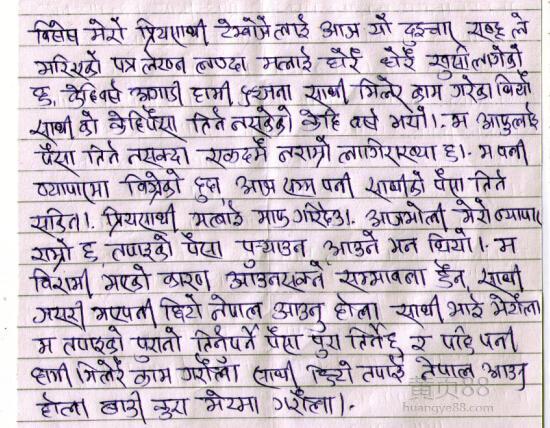 विशेष मेरो प्रियसाथी टेम्वोर्जेलाई आज यो दुइचार शब्द ले
भरिएको पत्र लेख्न लाग्दा मलाई धेरै धेरै खुसी लागेको
छ, केहिवर्ष अगाडी हामी दुइजना साथी मिलेर काम गरेका थियौं
साथी को केहिपैसा तिर्न नसकेको केहि वर्ष भयो। म आफुलाई
पैसा तिर्न नसक्दा एकदमै नराम्रो लागिराख्या छ। म पनी
व्यापारमा बिग्रेको हुदा आज सम्म पनी साथीको पैसा तिर्न
सकिन। प्रियसाथी मलाई माफ गरिदेउ। आजभोली मेरो व्यापार
राम्रो छ तपाइको पैसा पुर्‍याउन आउने मन थियो। म
विरामी भएको कारण आउनसक्ने सम्भावना छैन, साथी
जसरी भएपनी छिटो नेपाल आउनु होला साथी भाई भेटौला
म तपाइको पुरानो तिर्नुपर्ने पैसा पुरा तिर्नेछु र पछि पनी
हामी मिलेरै काम गरौला साथी छिटो तपाई नेपाल आउनु
होला बाकी कुरा भेटमा गरौला।
黄页88
huangye88.com